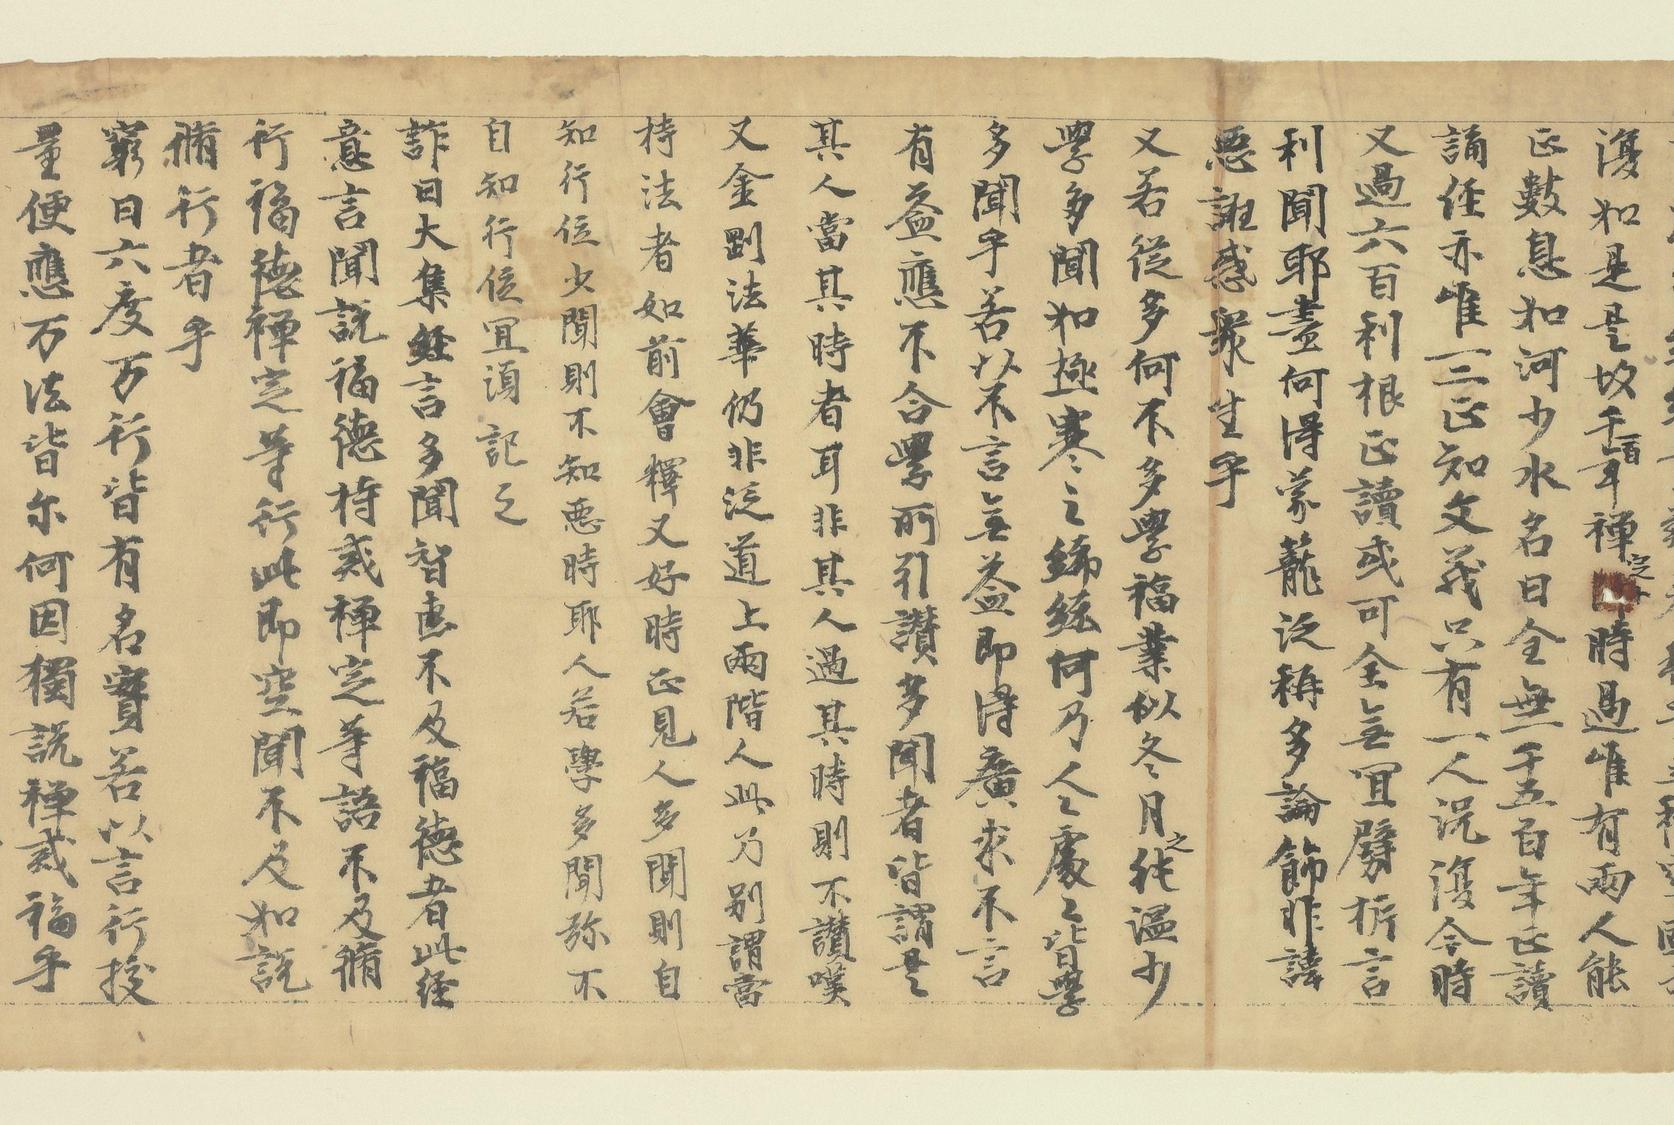 復如是是故千百年禪定十時過唯有兩人能
正數息如河少水名曰全無千五百年正讀
誦經亦唯一二正知文義只有一人況復今時
又過六百利根正讀或可全無宜劈析言
利聞耶盡何得蒙籠泛稱多論飾非諱
惡誑惑眾生乎
又若從多何不多學福業似冬月之純温少
學多聞如極寒之絺綌何乃人人處處皆學
多聞乎若以不言無益即得廣求不言
有益應不合學所引讚多聞者皆謂是
其人當其時者耳非其人過其時則不讚嘆
又金剛法華仍非泛道上兩階人此乃別謂當
持法者如前會釋又好時正見人多聞則自
知行位少聞則不知惡時耶人若學多聞弥不
自知行位宜須記之
詐曰大集經言多聞智惠不及福德者此經
意言聞說福德持戒禪定等語不及脩
行福德禪定等行此即空聞不及如說
脩行者乎
窮曰六度万行皆有名實若以言行挍
量便應万法皆尔何因獨說禪戒福乎